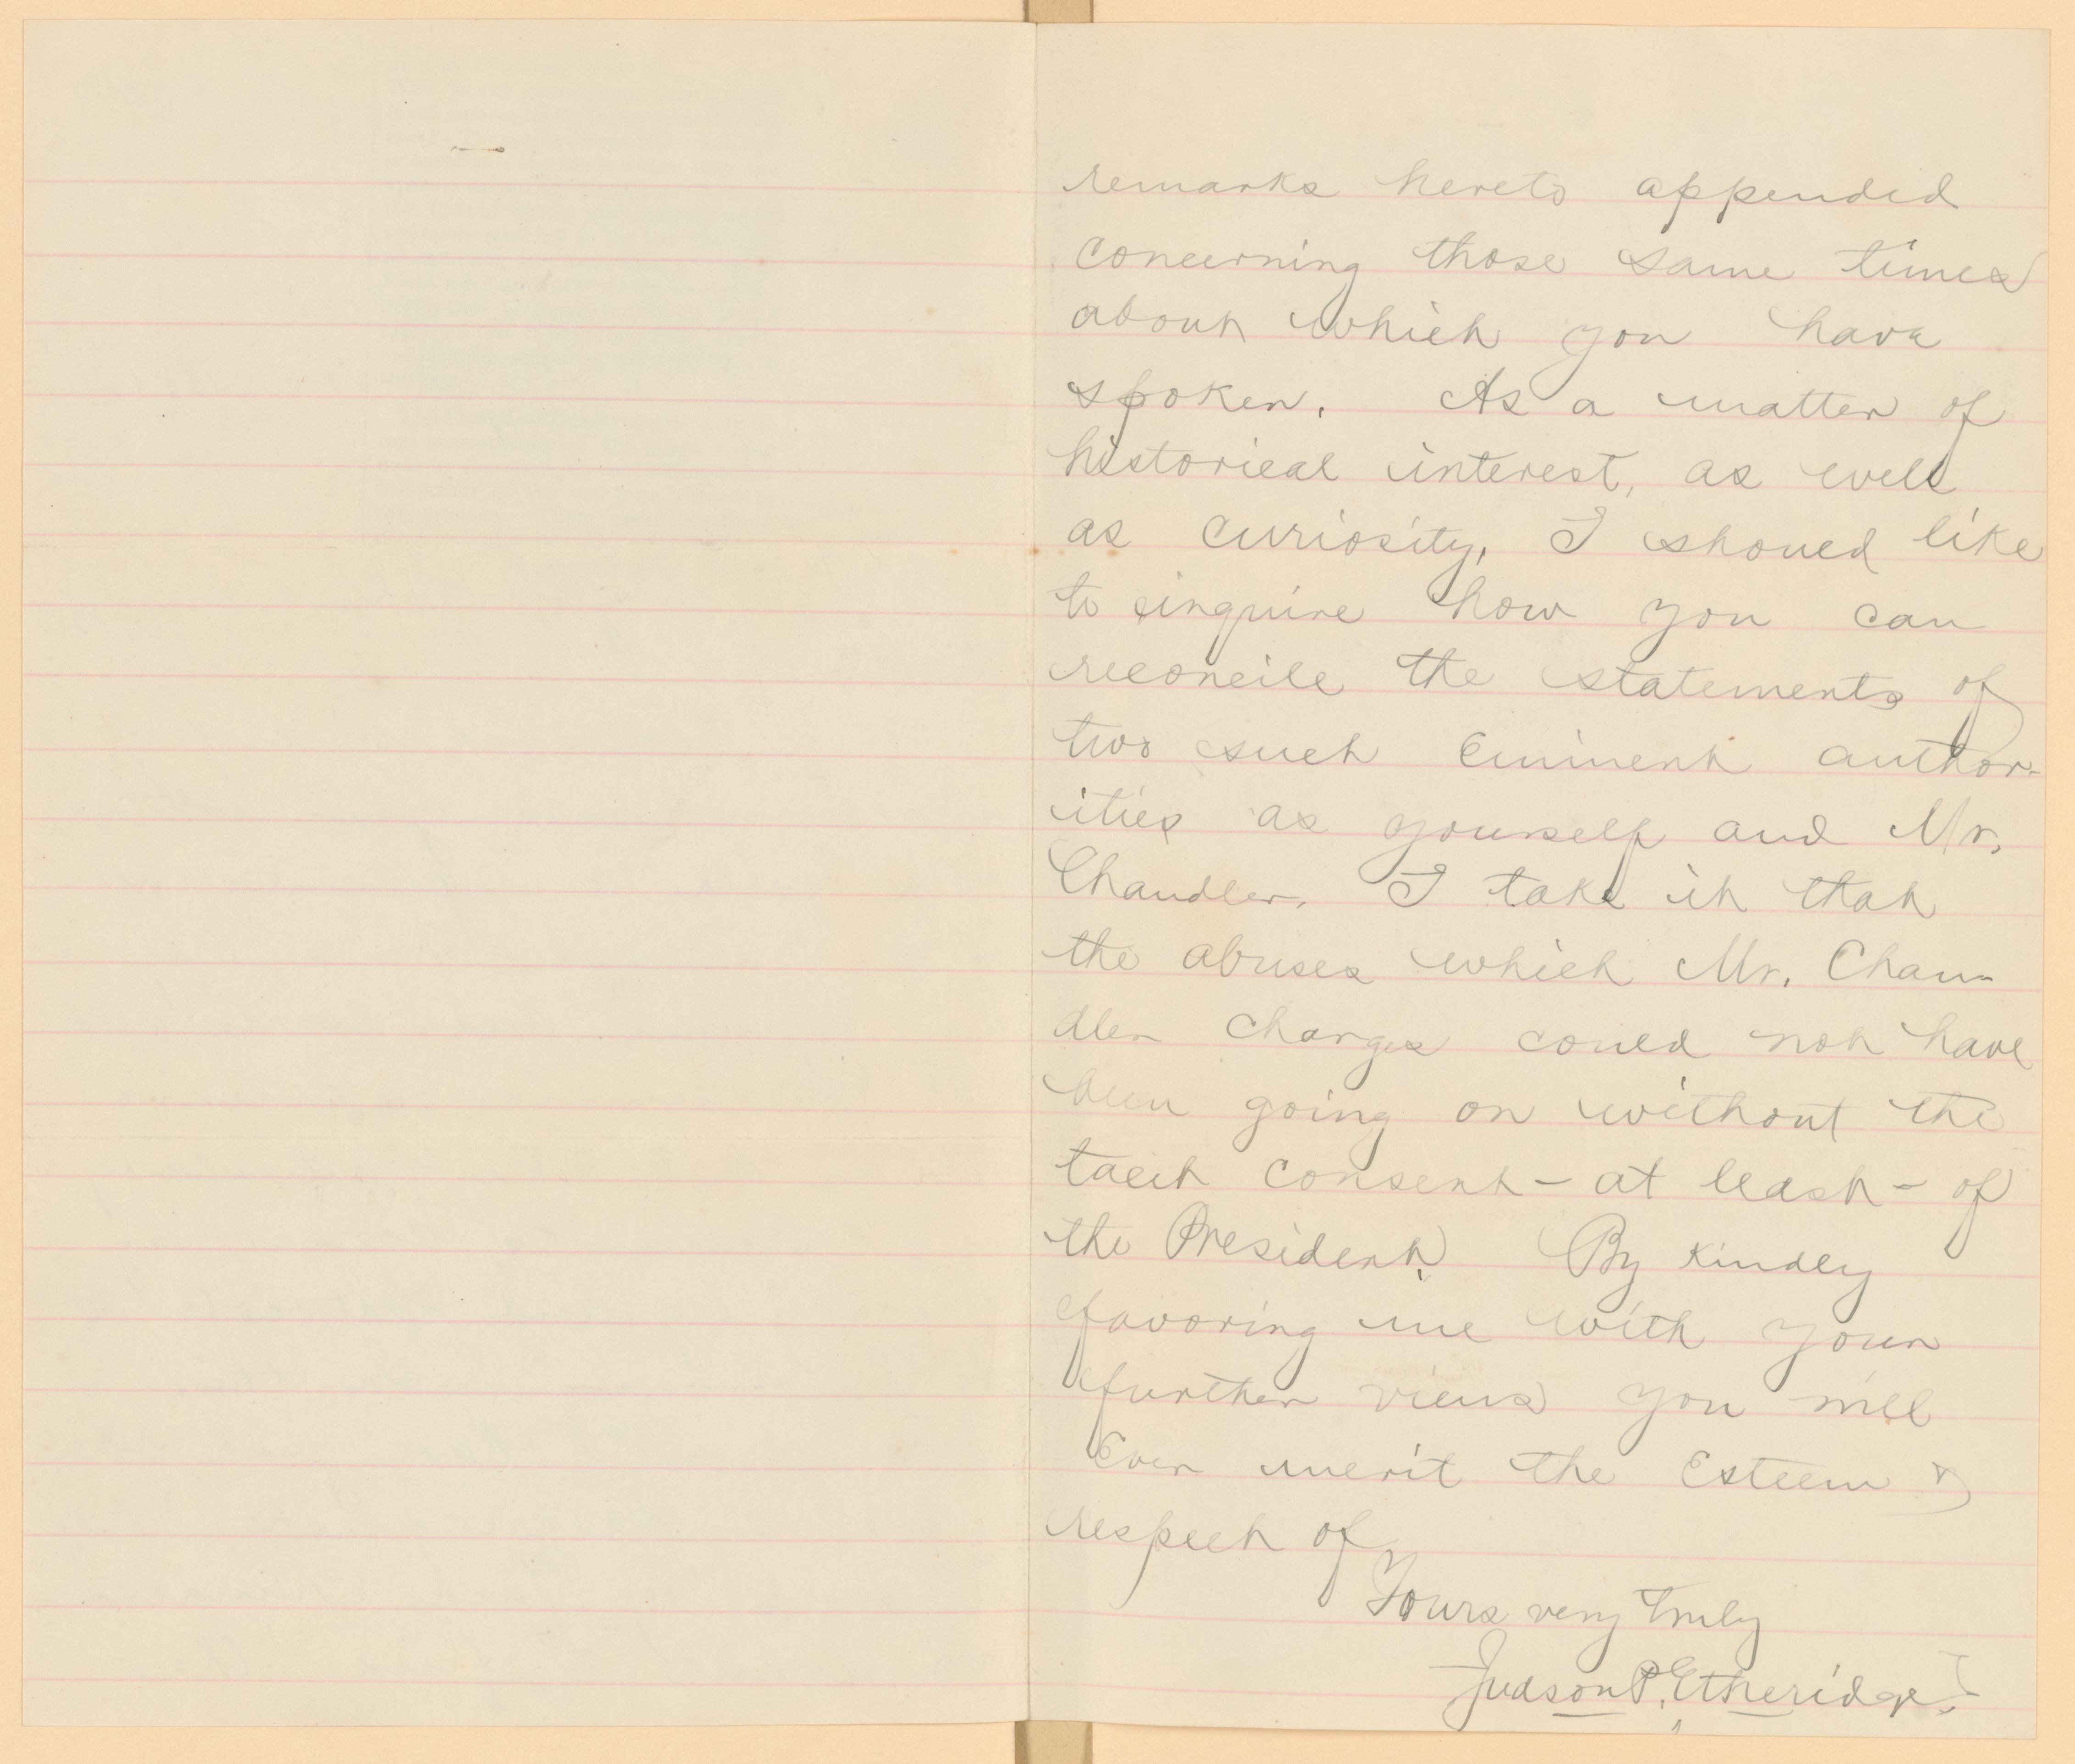 remarks hereto appended
concerning those same times
about which you have
spoken. As a matter of
historical interest, as well
as curiosity, I should like
to inquire how you can
reconcile the statements of
two such eminent author-
ities as yourself and Mr.
Chandler. I take it that
the abuses which Mr. Chan-
dler charges could not have
been going on without the
tacit consent - at least - of
the President. By kindly
favoring me with your
further views you will
Ever merit the Esteem &
respect of
Yours very truly
Judson P. Etheridge.